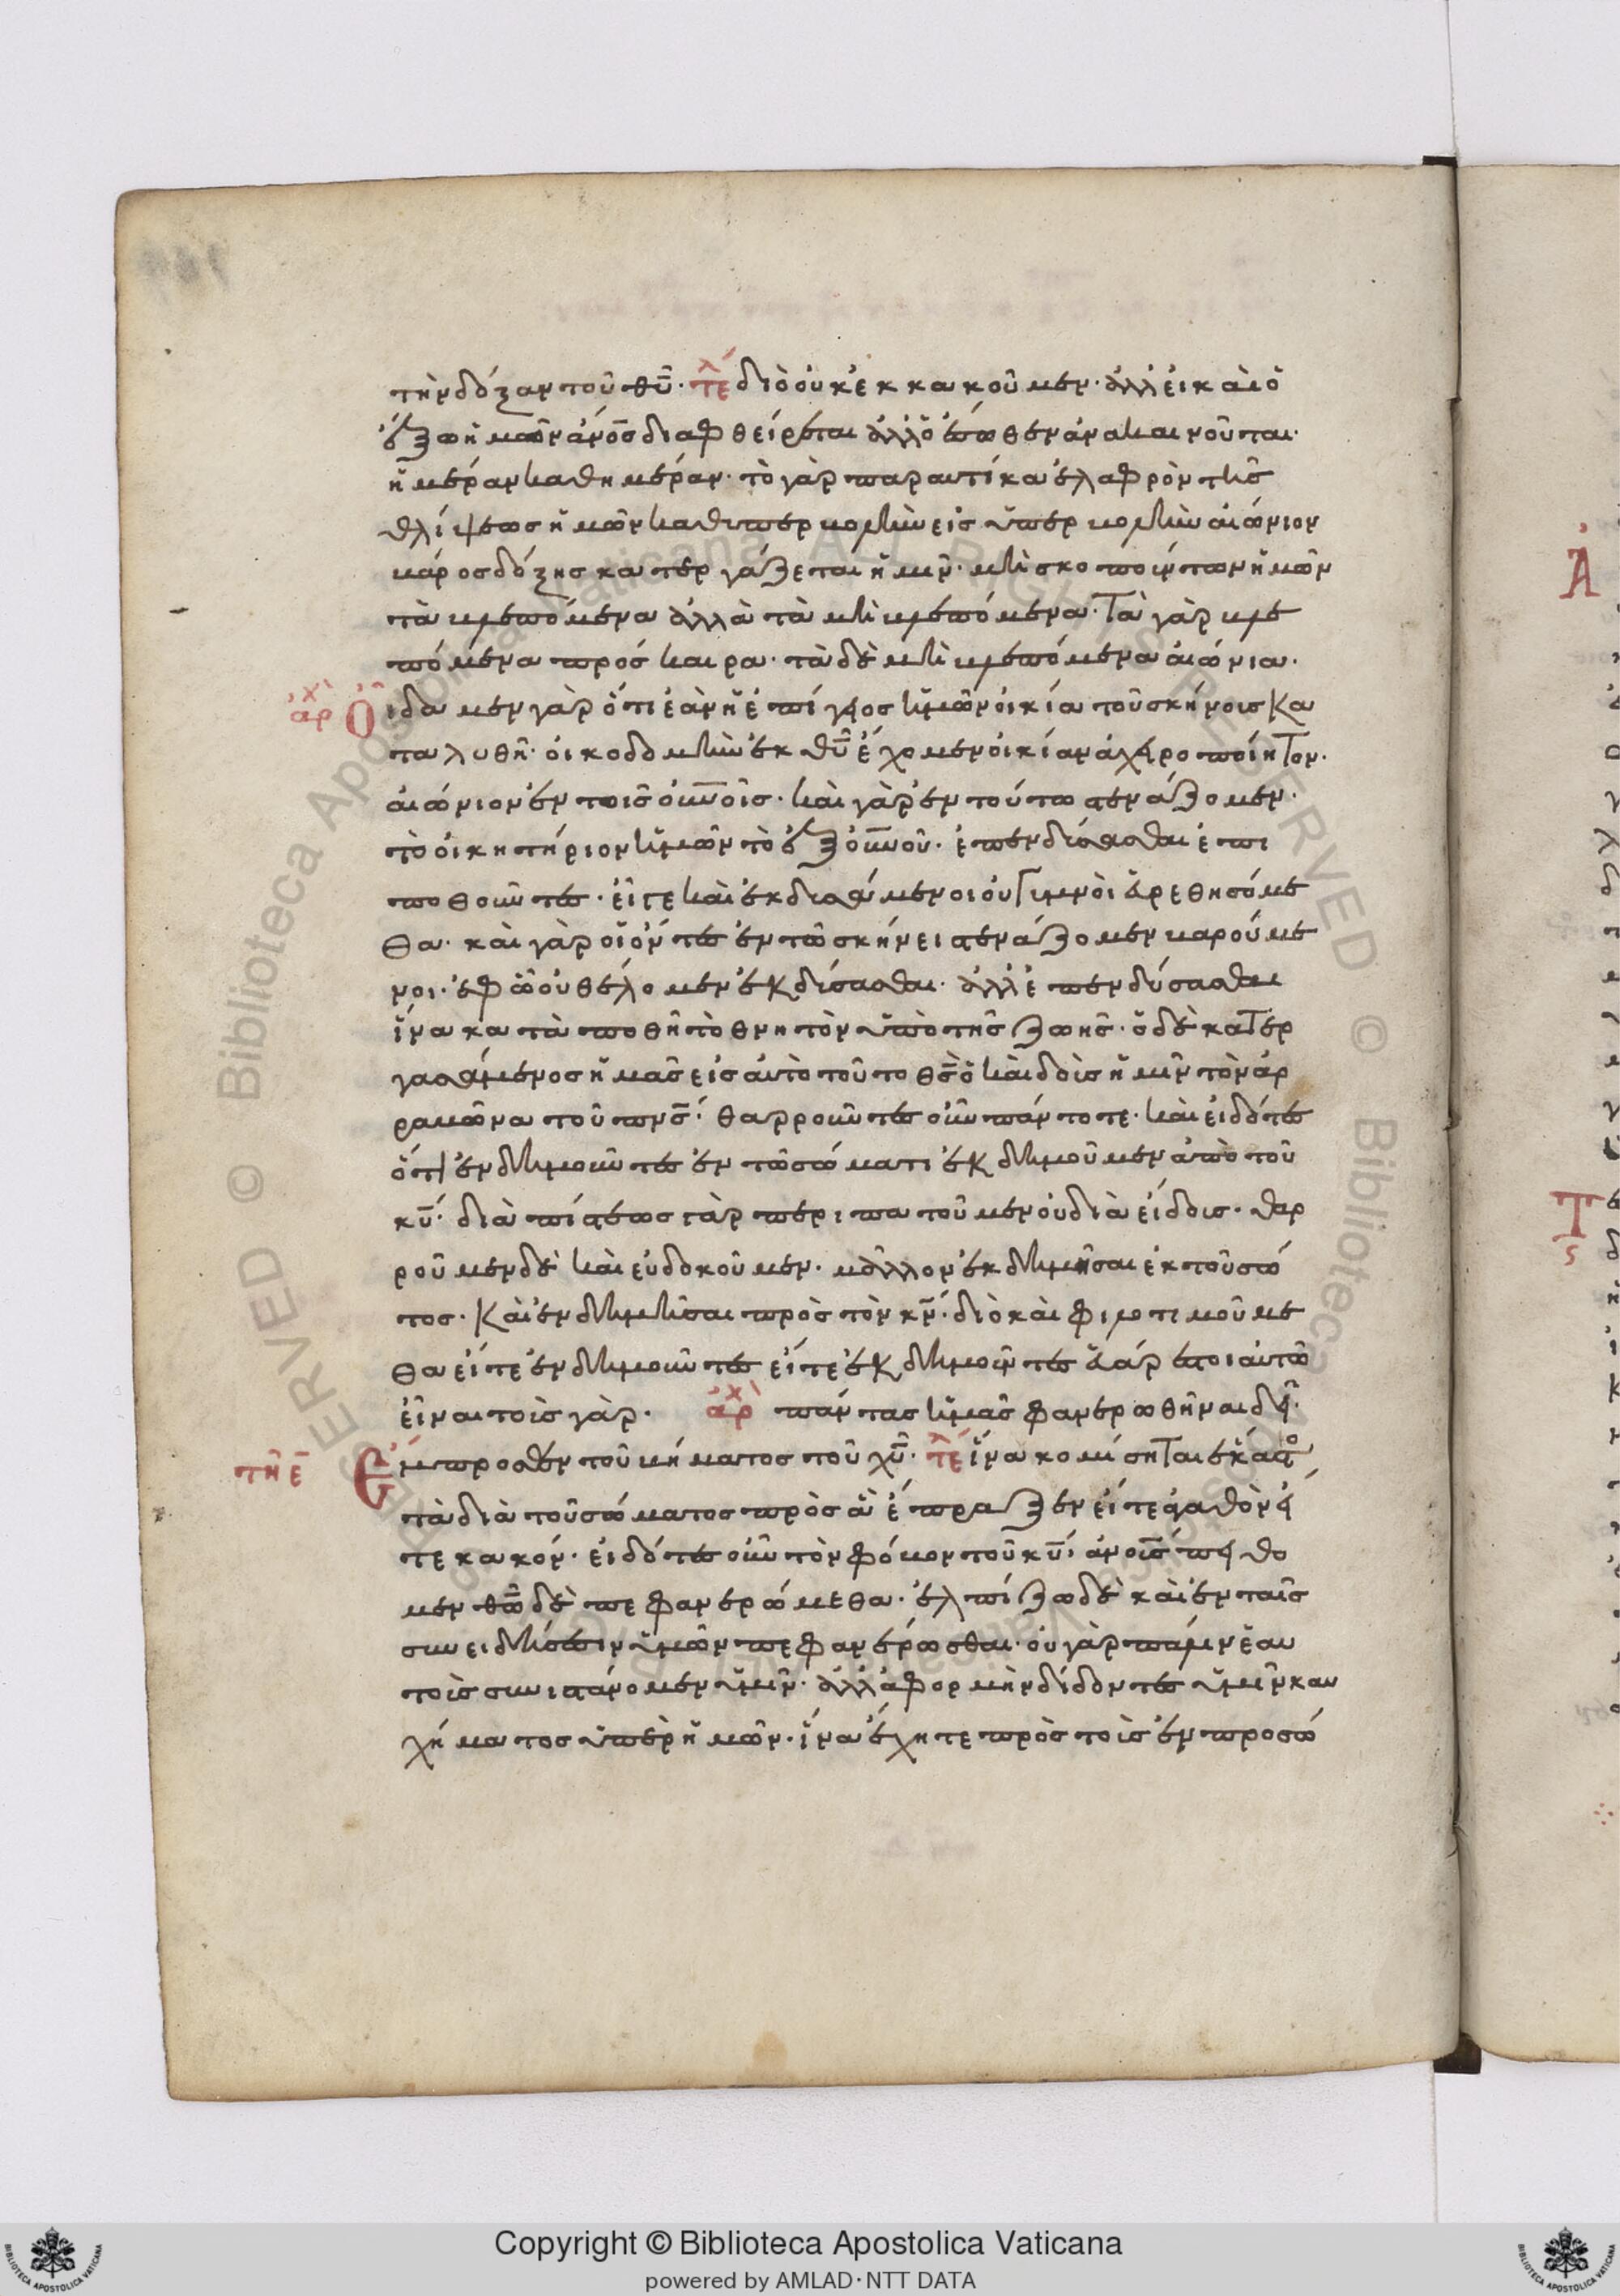 τὴν δόξαν τοῦ θῦ. τε διὸ οὐκ ἐκκακοῦμεν. ἀλλ εἰ καὶ ὁ
ἔξω ἡμῶν ἀνος διαφθείρεται ἀλλ ὁ ἔσωθεν ἀνακαινοῦται.
ἡμέραν καθημέραν. τὸ γὰρ παραυτίκα ἐλαφρὸν τῆς
θλίψεως ἡμῶν καθυπερβολὴν εἰς ὑπερβολὴν αἰώνιον
βάρος δόξης κατεργάζεται ἡμῖν. μὴ σκοπούντων ἡμῶν
τὰ βλεπόμενα ἀλλὰ τὰ μὴ βλεπόμενα. Τὰ γὰρ βλε
πόμενα πρόσκαιρα. τὰ δὲ μὴ βλεπόμενα αἰώνια.
ἀρχ Οἴδαμεν γὰρ ὅτι ἐὰν ἡ ἐπίγειος ἡμῶν οἰκία τοῦ σκήνους κα
ταλυθῆ. οἰκοδομὴν ἐκ θῦ ἔχομεν οἰκίαν ἀχειροποίητον.
αἰώνιον ἐν τοῖς οὐνοῖς. καὶ γὰρ ἐν τούτω στενάζομεν.
τὸ οἰκητήριον ἡμῶν τὸ ἐξ οὐνοῦ. ἐπενδύσασθαι ἐπι
ποθοῦντες. εἴγε καὶ ἐκδυσάμενοι οὐ γυμνοὶ εὑρεθησόμε
θα. καὶ γὰρ οἱ ὄντες ἐν τῶ σκήνει στενάζομεν βαρούμε
νοι. ἐφ ῶ οὐ θέλομεν ἐκδύσασθαι. ἀλλ ἐπενδύσασθαι
ἵνα καταποθῆ τὸ θνητὸν ὑπὸ τῆς ζωῆς. ὁ δὲ κατερ
γασάμενος ἡμᾶς εἰς αὐτὸ τοῦτο θς ὁ καὶ δοὺς ἡμῖν τὸν ἀρ
ραβῶνα τοῦ πνς. θαρροῦντες οὖν πάντοτε. καὶ εἰδότες
ὅτι ἐνδημοῦντες ἐν τῶ σώματι ἐκδημοῦμεν ἀπὸ τοῦ
κῦ. διὰ πίστεως γὰρ περιπατοῦμεν οὐ διὰ εἴδους. θαρ
ροῦμεν δὲ καὶ εὐδοκοῦμεν. μᾶλλον ἐκδημῆσαι ἐκ τοῦ σώ
τος. Καὶ ἐνδημῆσαι πρὸς τὸν κν. διὸ καὶ φιλοτιμούμε
θα εἴτε ἐνδημοῦντες εἴτε ἐκδημοῦντες εὐάρεστοι αὐτῶ
εἶναι τοὺς γὰρ. ἀρχ πάντας ἡμᾶς φανερωθῆναι δεῖ.
τῆ ε Ἔμπροσθεν τοῦ βήματος τοῦ χῦ. τε ἵνα κομίσηται ἕκαστο
τὰ διὰ τοῦ σώματος πρὸς ἃ ἔπραξεν εἴτε ἀγαθὸν εἴ
τε κακόν. εἰδότες οὖν τὸν φόβον τοῦ κῦ. ἀνους πείθο
μεν θῶ δὲ πεφανερώμεθα. ἐλπίζω δὲ καὶ ἐν ταῖς
συνειδήσεσιν ὑμῶν πεφανερῶσθαι. οὐ γὰρ πάλιν ἑαυ
τοὺς συνιστάνομεν ὑμῖν. ἀλλ ἀφορμὴν δίδοντες ὑμῖν καυ
χήματος ὑπὲρ ἡμῶν. ἵνα ἔχητε πρὸς τοὺς ἐν προσώ
Α
Τ
Copyright © Biblioteca Apostolica Vaticana
powered by AMLAD·NTT DATA